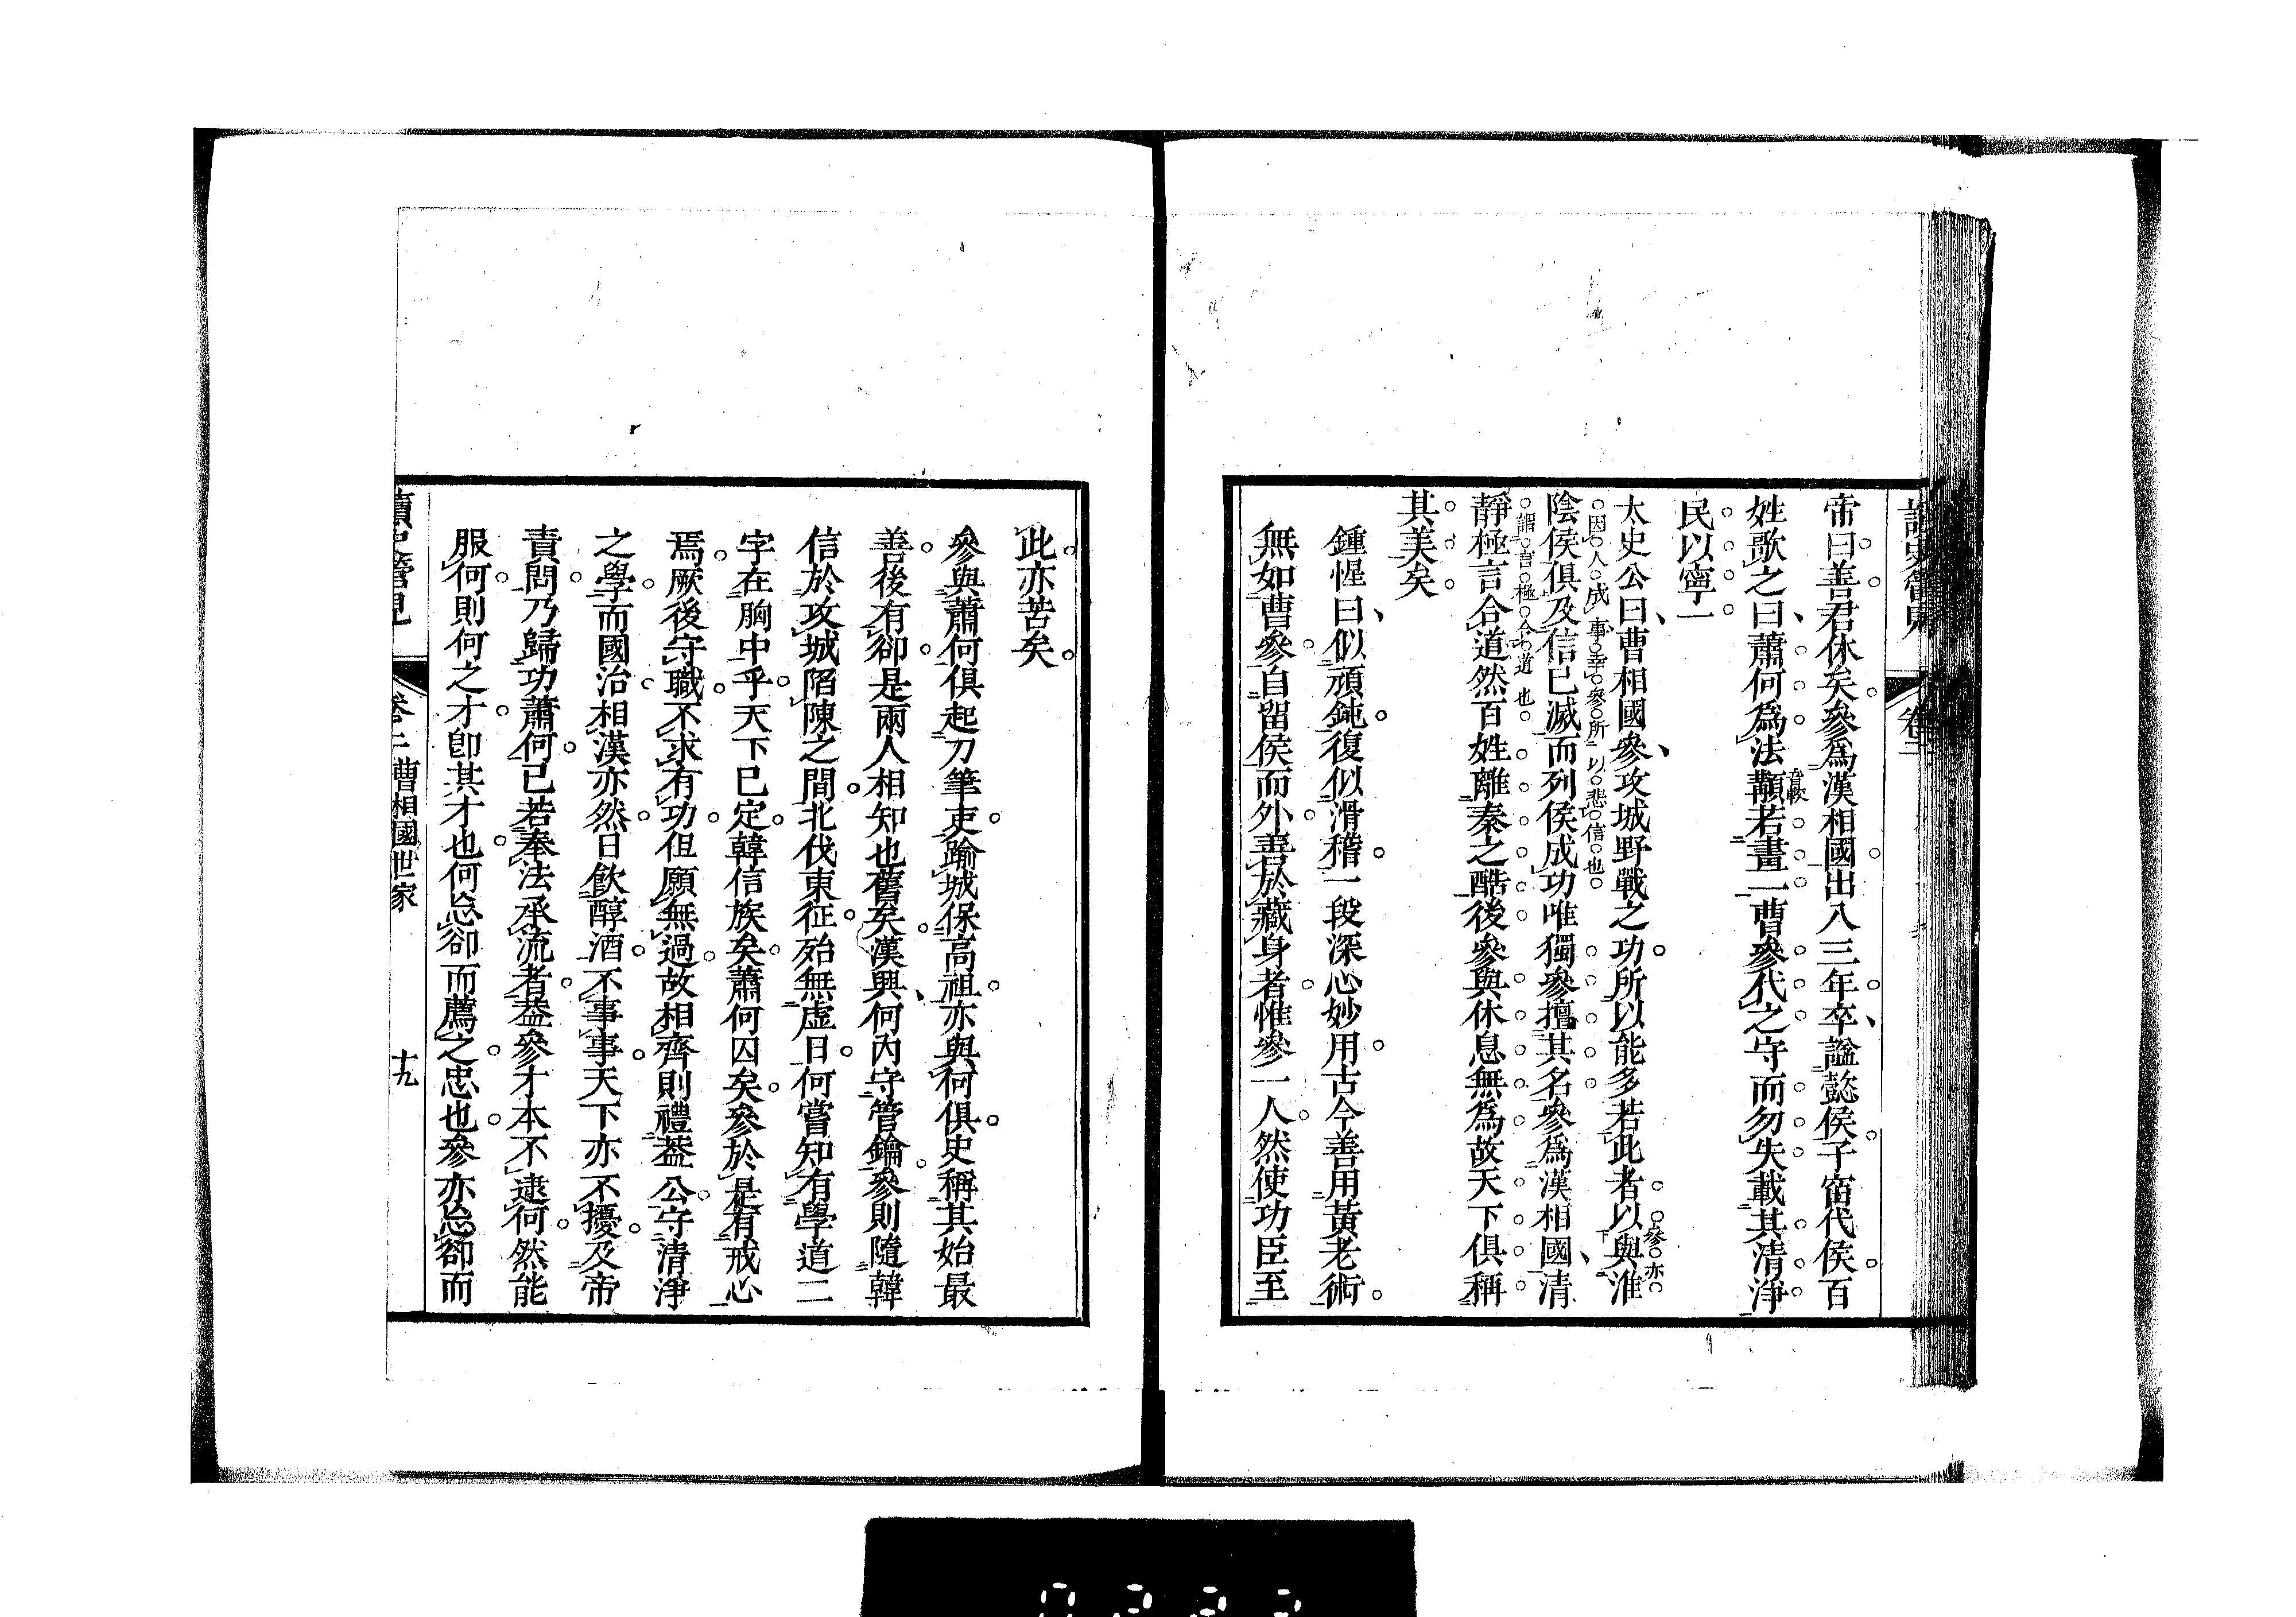 帝曰善君休矣參爲漢相國出入三年卒謚懿侯子窋代侯百
姓歌之曰蕭何爲法顜若畫一曹參代之守而勿失載其清淨
音較
民以寧一
太史公曰曹相國參攻城野戰之功所以能多若此者以與淮
參亦
因人成事幸參所以悲信也
陰侯俱及信已滅而列侯成功唯獨參擅其名參爲漢相國清
謂言極合道也
靜極言合道然百姓離秦之酷後參與休息無爲故天下俱稱
其美矣
鍾惺曰似頑鈍復似滑稽一段深心妙用古今善用黃老術
無如曹參自留侯而外善於藏身者惟參一人然使功臣至
此亦苦矣
參與蕭何俱起刀筆吏踰城保高祖亦與何俱史稱其始最
善後有卻是兩人相知也舊矣漢興何內守管鑰參則隨韓
信於攻城陷陳之間北伐東征殆無虛日何嘗知有學道二
字在胸中乎天下已定韓信族矣蕭何囚矣參於是有戒心
焉厥後守職不求有功但願無過故相齊則禮蓋公守清淨
之學而國治相漢亦然日飲醇酒不事事天下亦不擾及帝
責問乃歸功蕭何已若奉法承流者蓋參才本不逮何然能
服何則何之才卽其才也何忘卻而薦之忠也參亦忘卻而
讀史管見
卷二 曹相國世家
十九